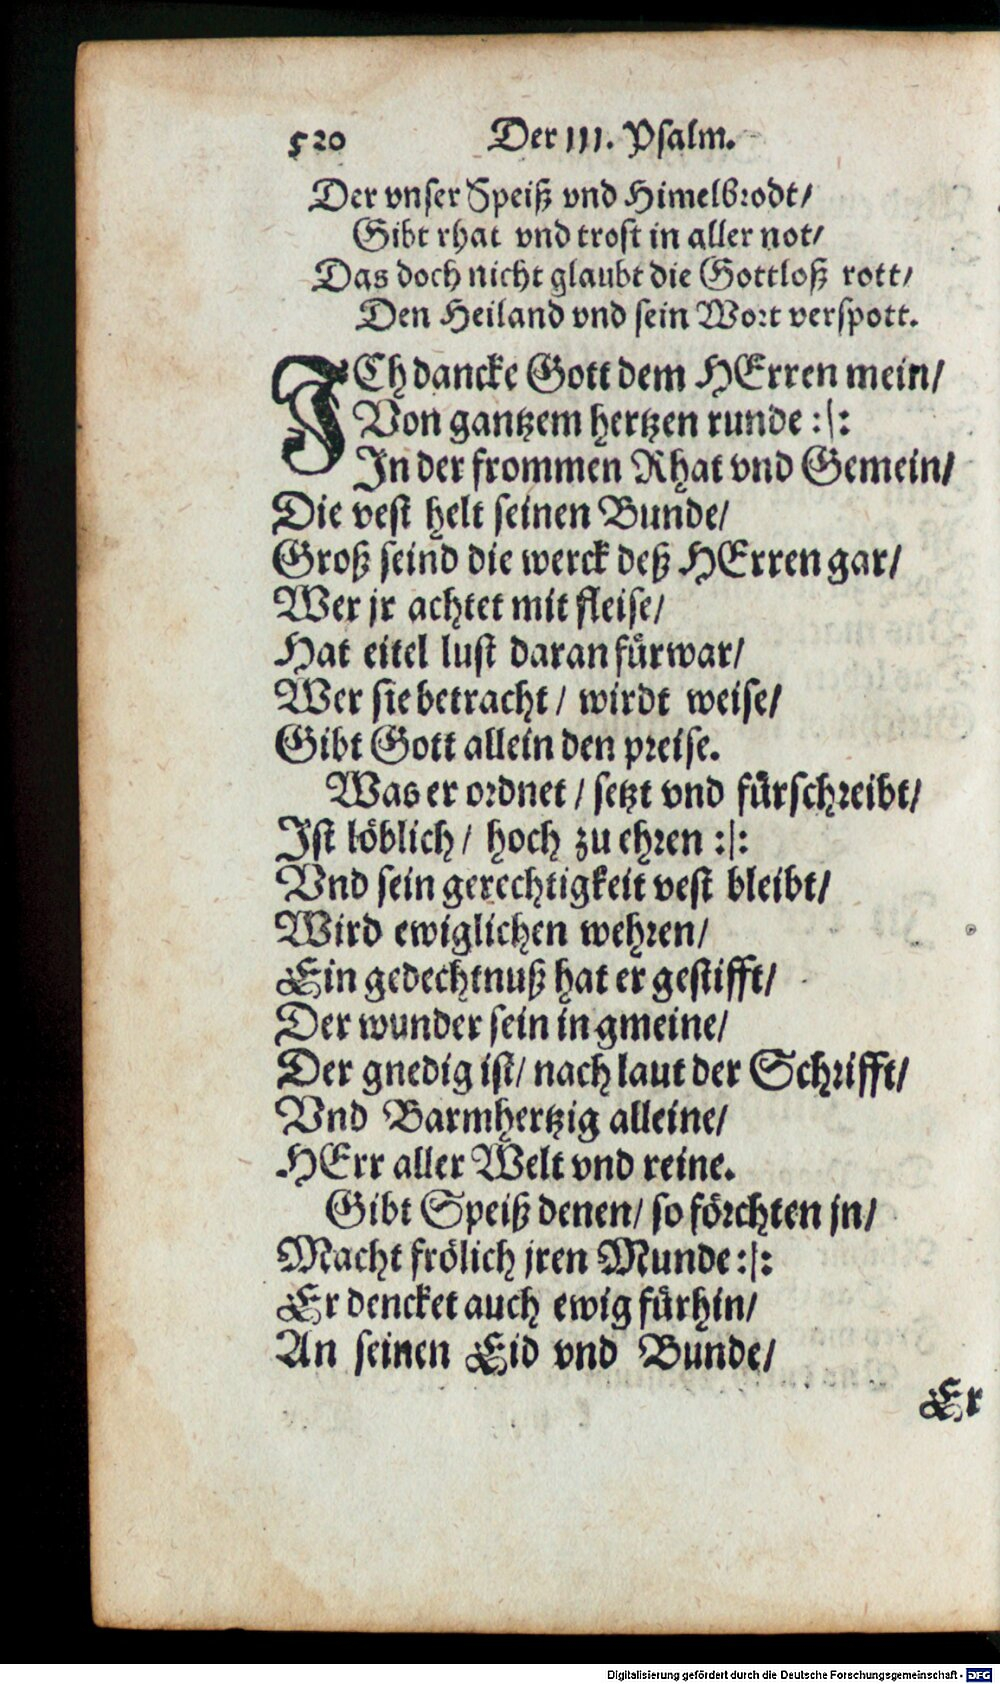 520 Der 111. Psalm.
Der vnser Speiß vnd Himelbrodt/
Gibt rhat vnd trost in aller not/
Das doch nicht glaubt die Gottloß rott/
Den Heiland vnd sein Wort verspott.
ICh dancke Gott dem HErren mein/
Von gantzem hertzen runde :|:
In der frommen Rhat vnd Gemein/
Die vest helt seinen Bunde/
Groß seind die werck deß HErren gar/
Wer jr achtet mit fleise/
Hat eitel lust daran fürwar/
Wer sie betracht / wirdt weise/
Gibt Gott allein den preise.
Was er ordnet / setzt vnd fürschreibt/
Ist löblich / hoch zu ehren :|:
Vnd sein gerechtigkeit vest bleibt/
Wird ewiglichen wehren/
Ein gedechtnuß hat er gestifft/
Der wunder sein in gmeine/
Der gnedig ist/ nach laut der Schrifft/
Vnd Barmhertzig alleine/
HErr aller Welt vnd reine.
Gibt Speiß denen/ so förchten jn/
Macht frölich jren Munde :|:
Er dencket auch ewig fürhin/
An seinen Eid vnd Bunde/
Er
Digitalisierung gefördert durch die Deutsche Forschungsgemeinschaft - DFG